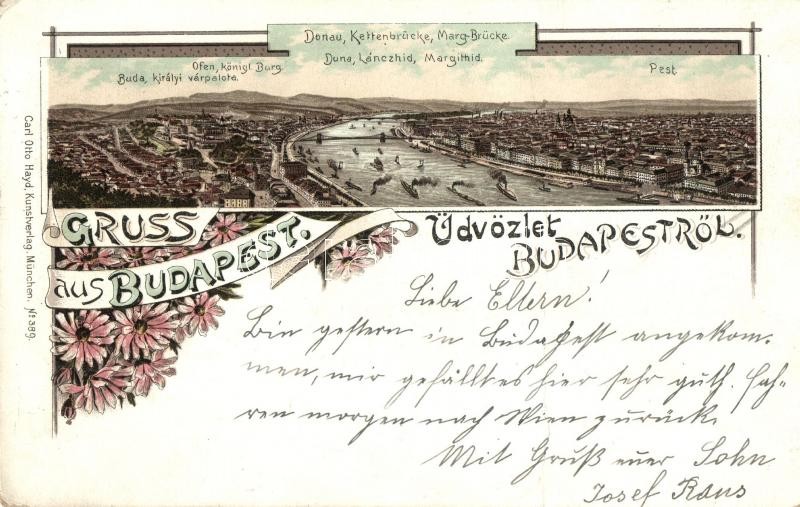 Donau, Kettenbrücke, Marg-Brücke.
Duna, Lánczhid, Margithid.
Ofen, königl. Burg.
Buda, királyi várpalota.
Pest.
Carl Otto Hayd, Kunstverlag, München. No 389.
GRUSS
aus BUDAPEST.
Üdvözlet
BUDAPESTRÖL.
Liebe Eltern!
Bin gestern in Budapest angekom-
men, mir gefällt es hier sehr guth. Fah-
ren morgen nach Wien zurück.
Mit Gruß euer Sohn
Josef Raus